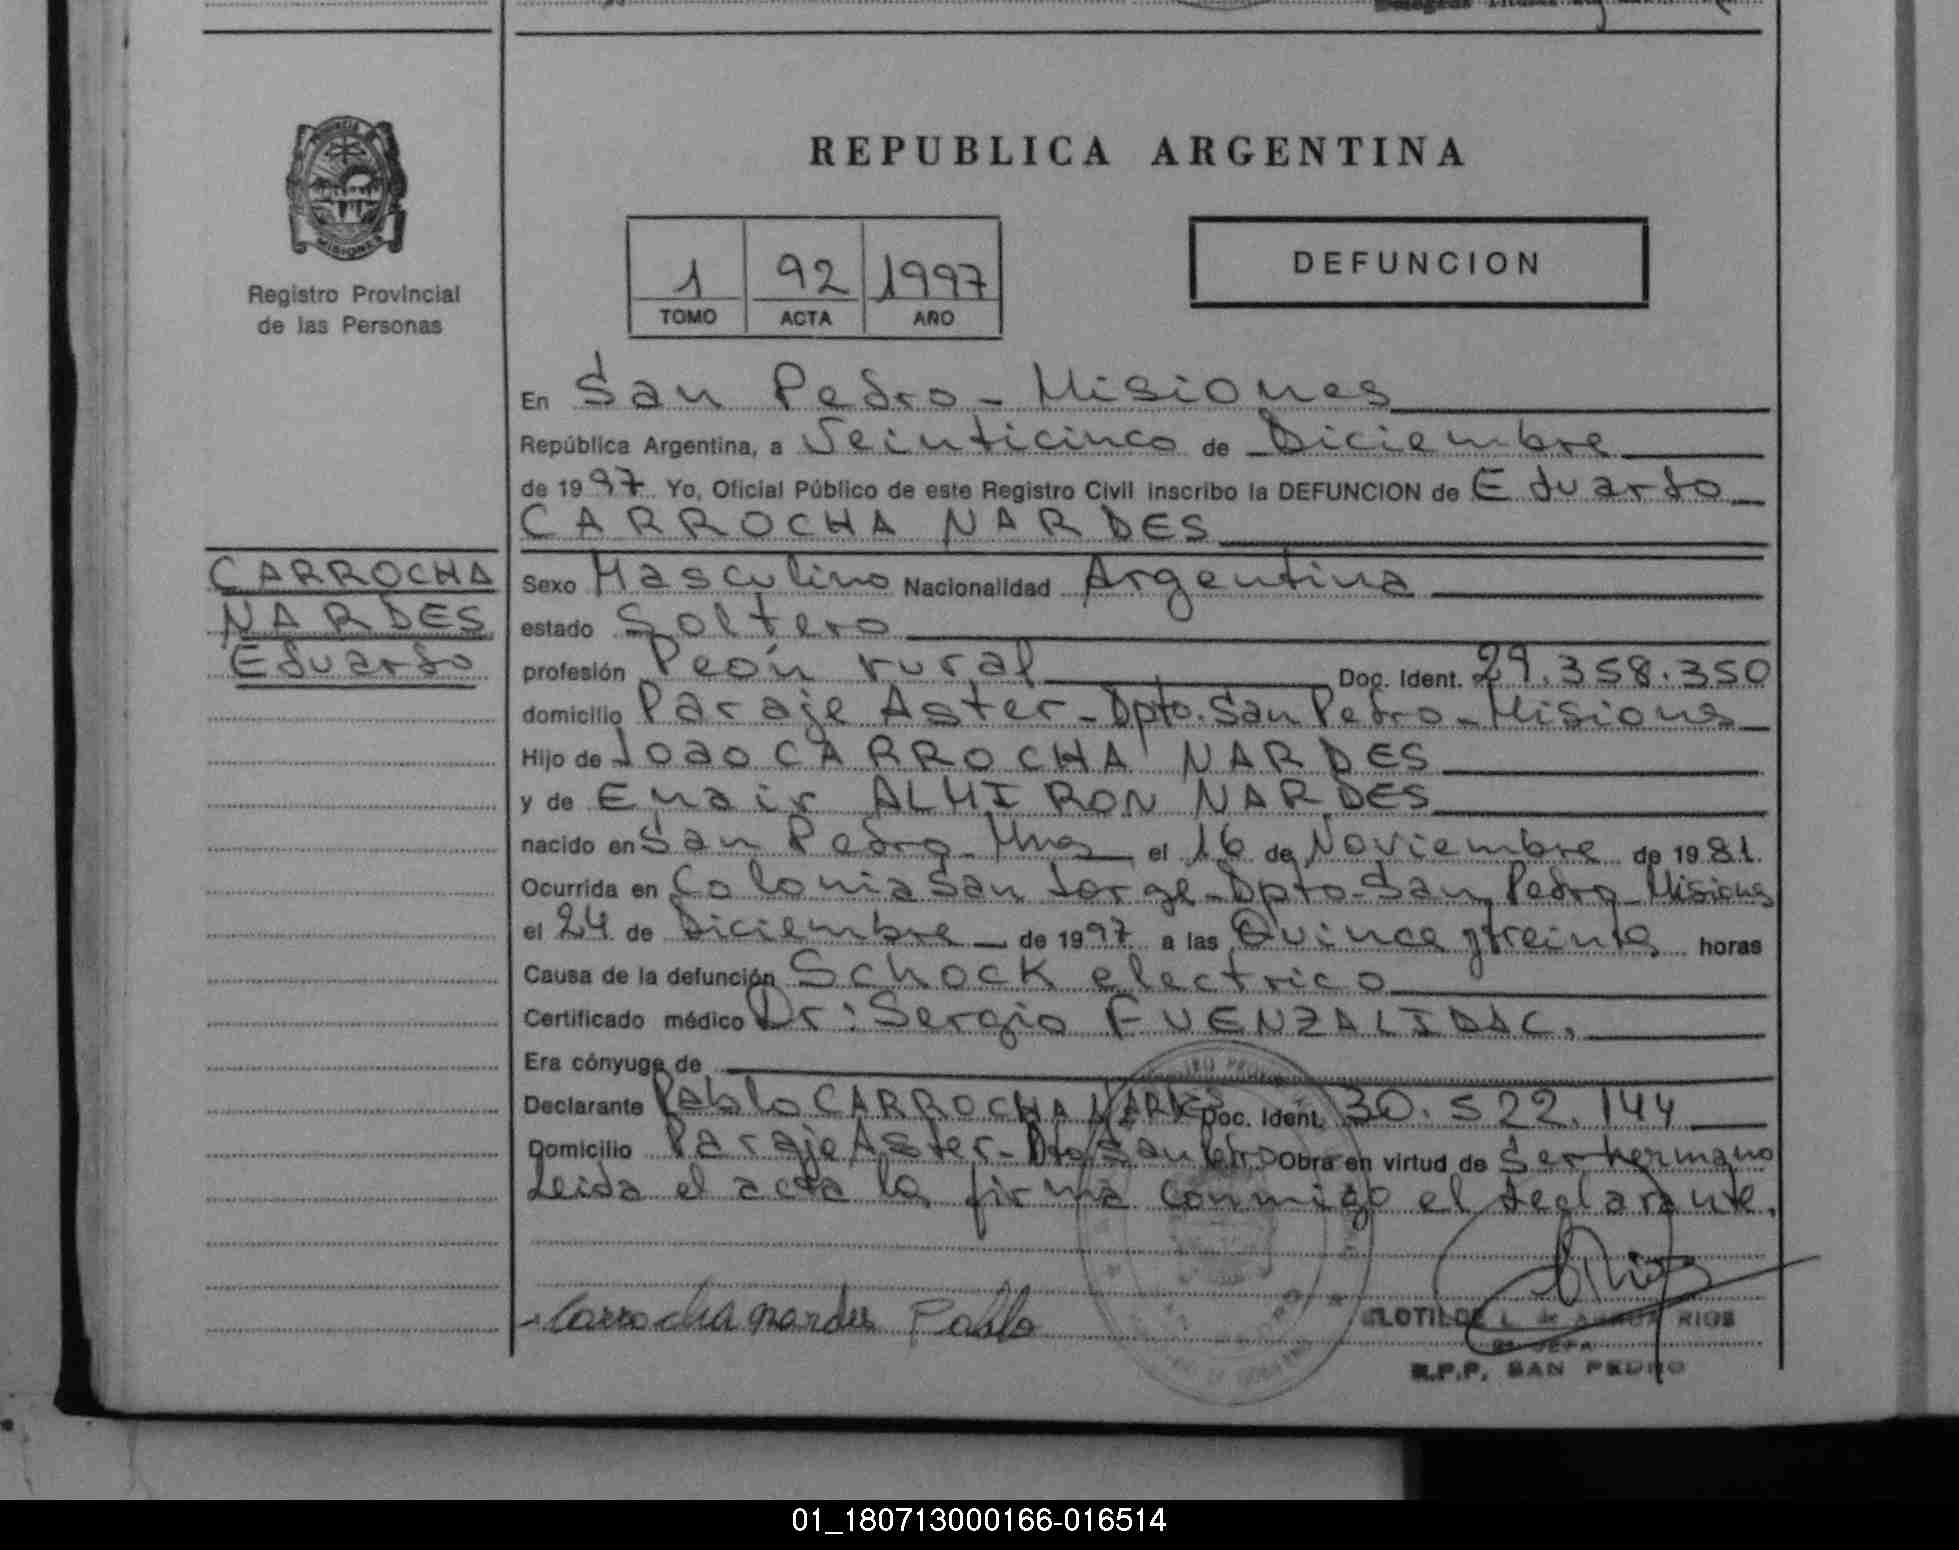 REPUBLICA ARGENTINA
PROVINCIA DE
MISIONES
Registro Provincial
de las Personas
1 92 1997
TOMO ACTA AÑO
DEFUNCION
En San Pedro - Misiones
República Argentina, a Veinticinco de Diciembre
de 1997 Yo, Oficial Público de este Registro Civil inscribo la DEFUNCION de Eduardo
CARROCHA NARDES
CARROCHA
NARDES
Eduardo
Sexo Masculino Nacionalidad Argentina
estado Soltero
profesión Peón rural Doc. Ident. 29.358.350
domicilio Paraje Aster - Dpto. San Pedro - Misiones
Hijo de Joao CARROCHA NARDES
y de Enair ALMIRON NARDES
nacido en San Pedro - Mnes el 16 de Noviembre de 1981.
Ocurrida en Colonia San Jorge - Dpto - San Pedro - Misiones
el 24 de Diciembre de 1997 a las Quince y treinta horas
Causa de la defunción Schock electrico
Certificado médico Dr: Sergio FUENZALIDA C.
Era cónyuge de
Declarante Pablo CARROCHA NARDES Doc. Ident. 30.522.144
Domicilio Paraje Aster - Dto San Pedro Obra en virtud de Ser hermano
Leida el acta la firma conmigo el declarante.
Carrocha nardes Pablo
CLOTILDE L. de RIOS
JEFA
R.P.P. SAN PEDRO
01_180713000166-016514